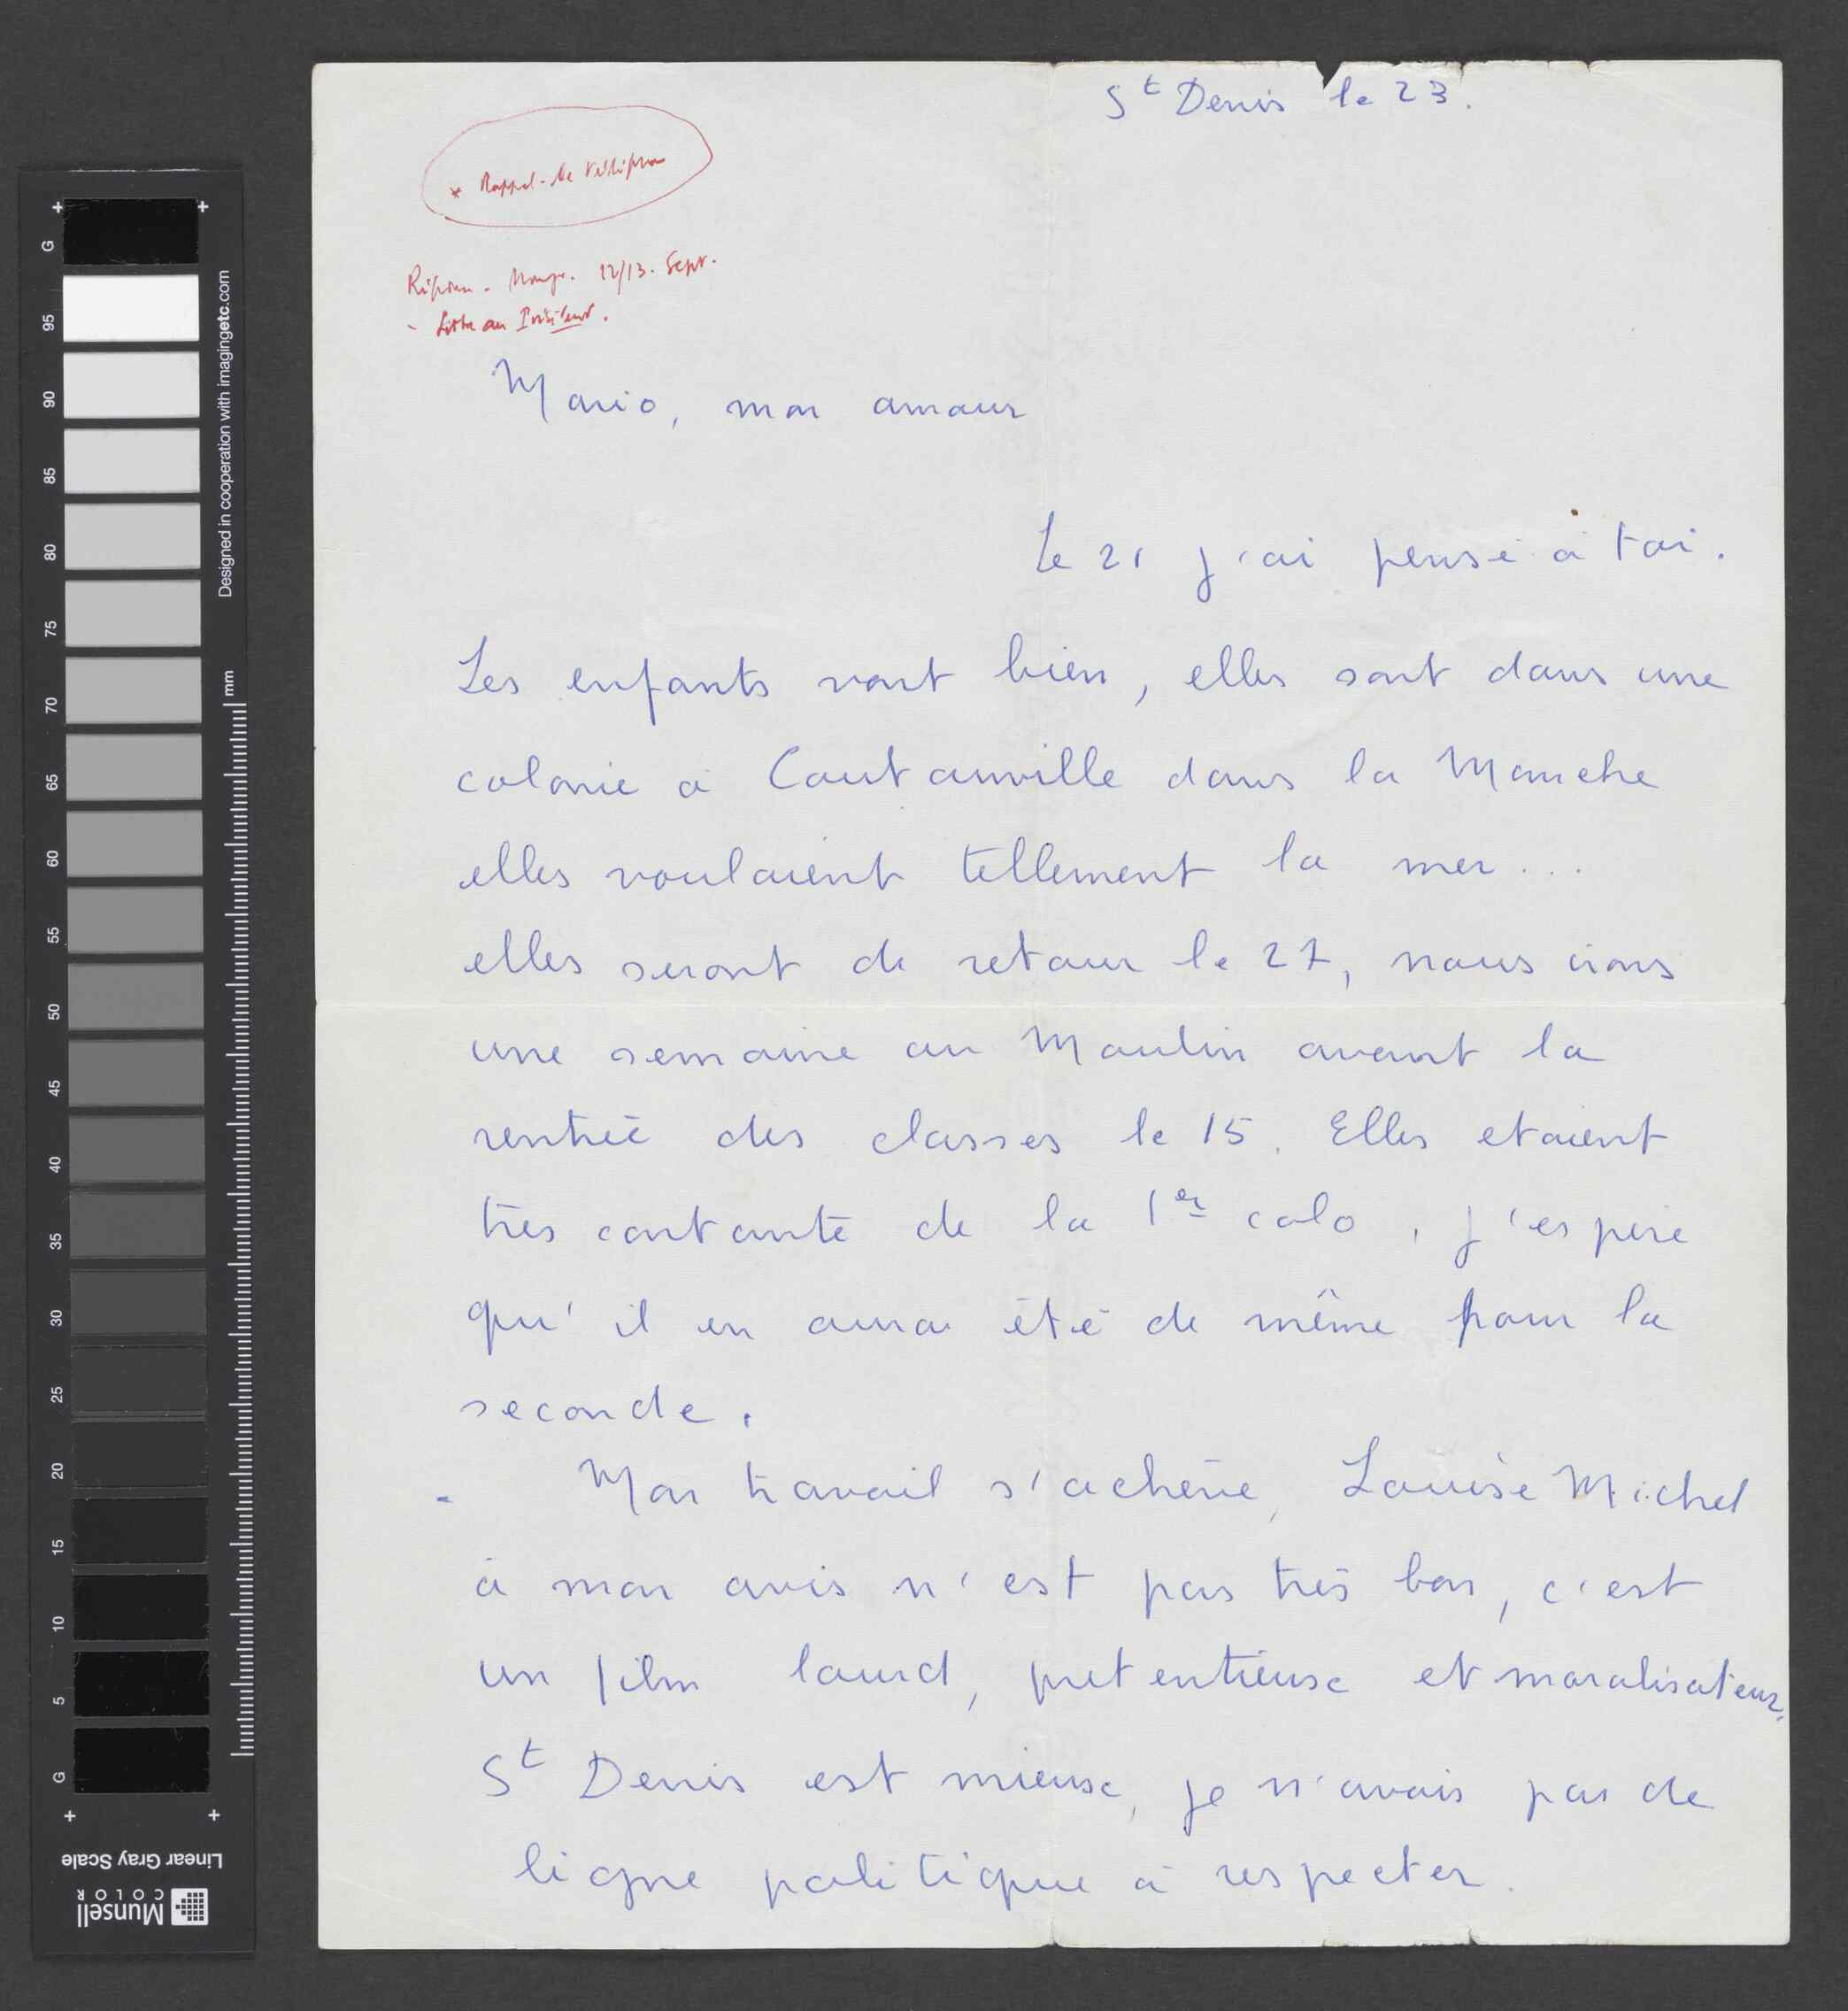 St Denis le 23.
* Rappel - de
12/13. Sept.
- Lettre au Président.
Mario, mon amour
Le 21 j'ai pensé à toi.
Les enfants vont bien, elles sont dans une
colonie à Coutainville dans la Manche
elles voulaient tellement la mer...
elles seront de retour le 27, nous irons
une semaine au Moulin avant la
rentrée des classes le 15. Elles etaient
très contante de la 1er colo, j'espère
qu'il en aura été de même pour la
seconde.
Mon travail s'achève, Louise Michel
à mon avis n'est pas très bon, c'est
un film lourd, pretentieux et moralisateur,
St Denis est mieux, je n'avais pas de
ligne politique à respecter.
G
95
90
85
80
75
70
65
60
55
50
45
40
35
30
25
20
15
10
5
G
mm
Designed in cooperation with imagingetc.com
Linear Gray Scale
Munsell
COLOR